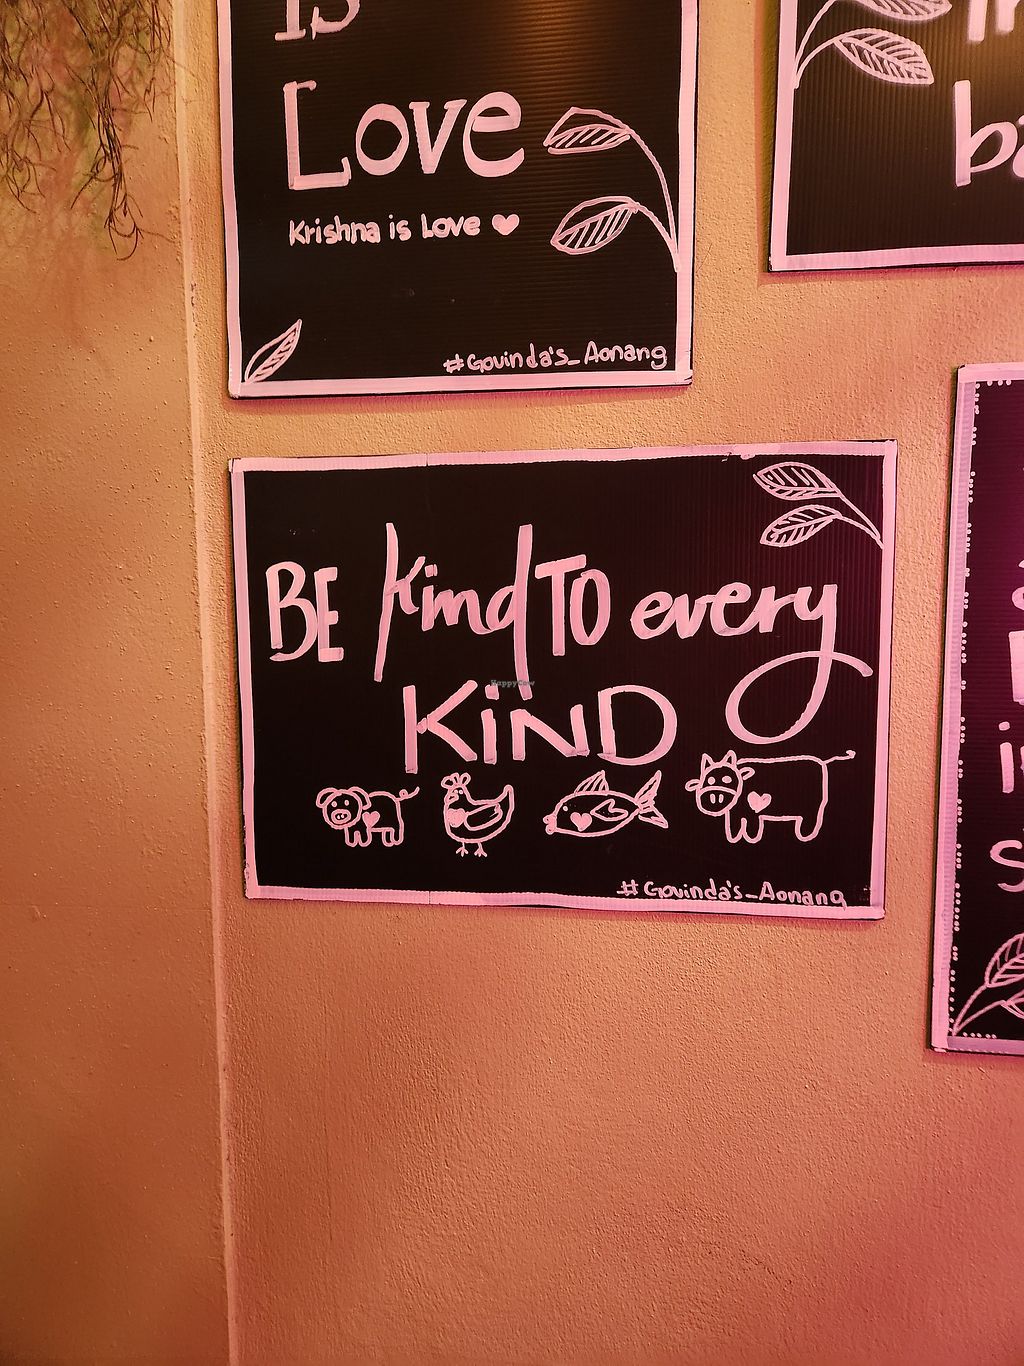 IS
Love
Krishna is Love
#Govinda's_Aonang
BE kind TO every
KiND
HappyCow
#Govinda's_Aonang